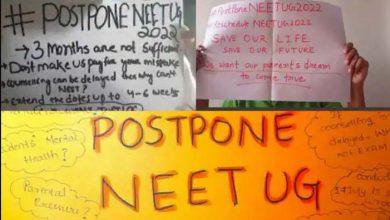 #POSTPONE NEETUG
2022
→ 3 Months are not Sufficient
→ Don't make us pay for your mistake
→ Counselling can be delayed then why can't
NEET?
→ Extend the dates up to 4-6 weeks
#PostponeNEETUG2022
#RescheduleNEETUG2022
SAVE OUR LIFE
SAVE OUR FUTURE
We want our parent's dream
to come true
POSTPONE
NEET UG
Mental
Health?
Parental
Pressure?
If
counselling
delayed
EXAM
17 July